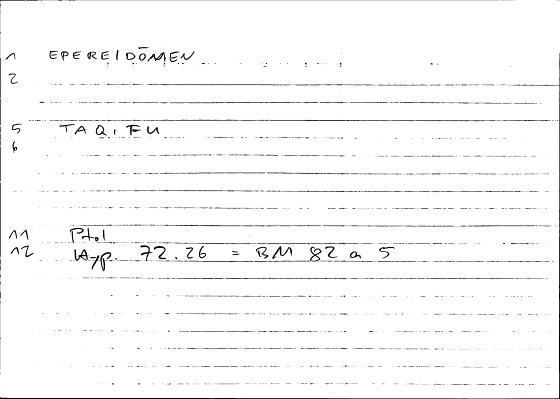 1 EPEREIDŌMEN
2
5 TAQ.FU
6
11 Ptol
12 Hyp. 72.26 = BM 82 a 5